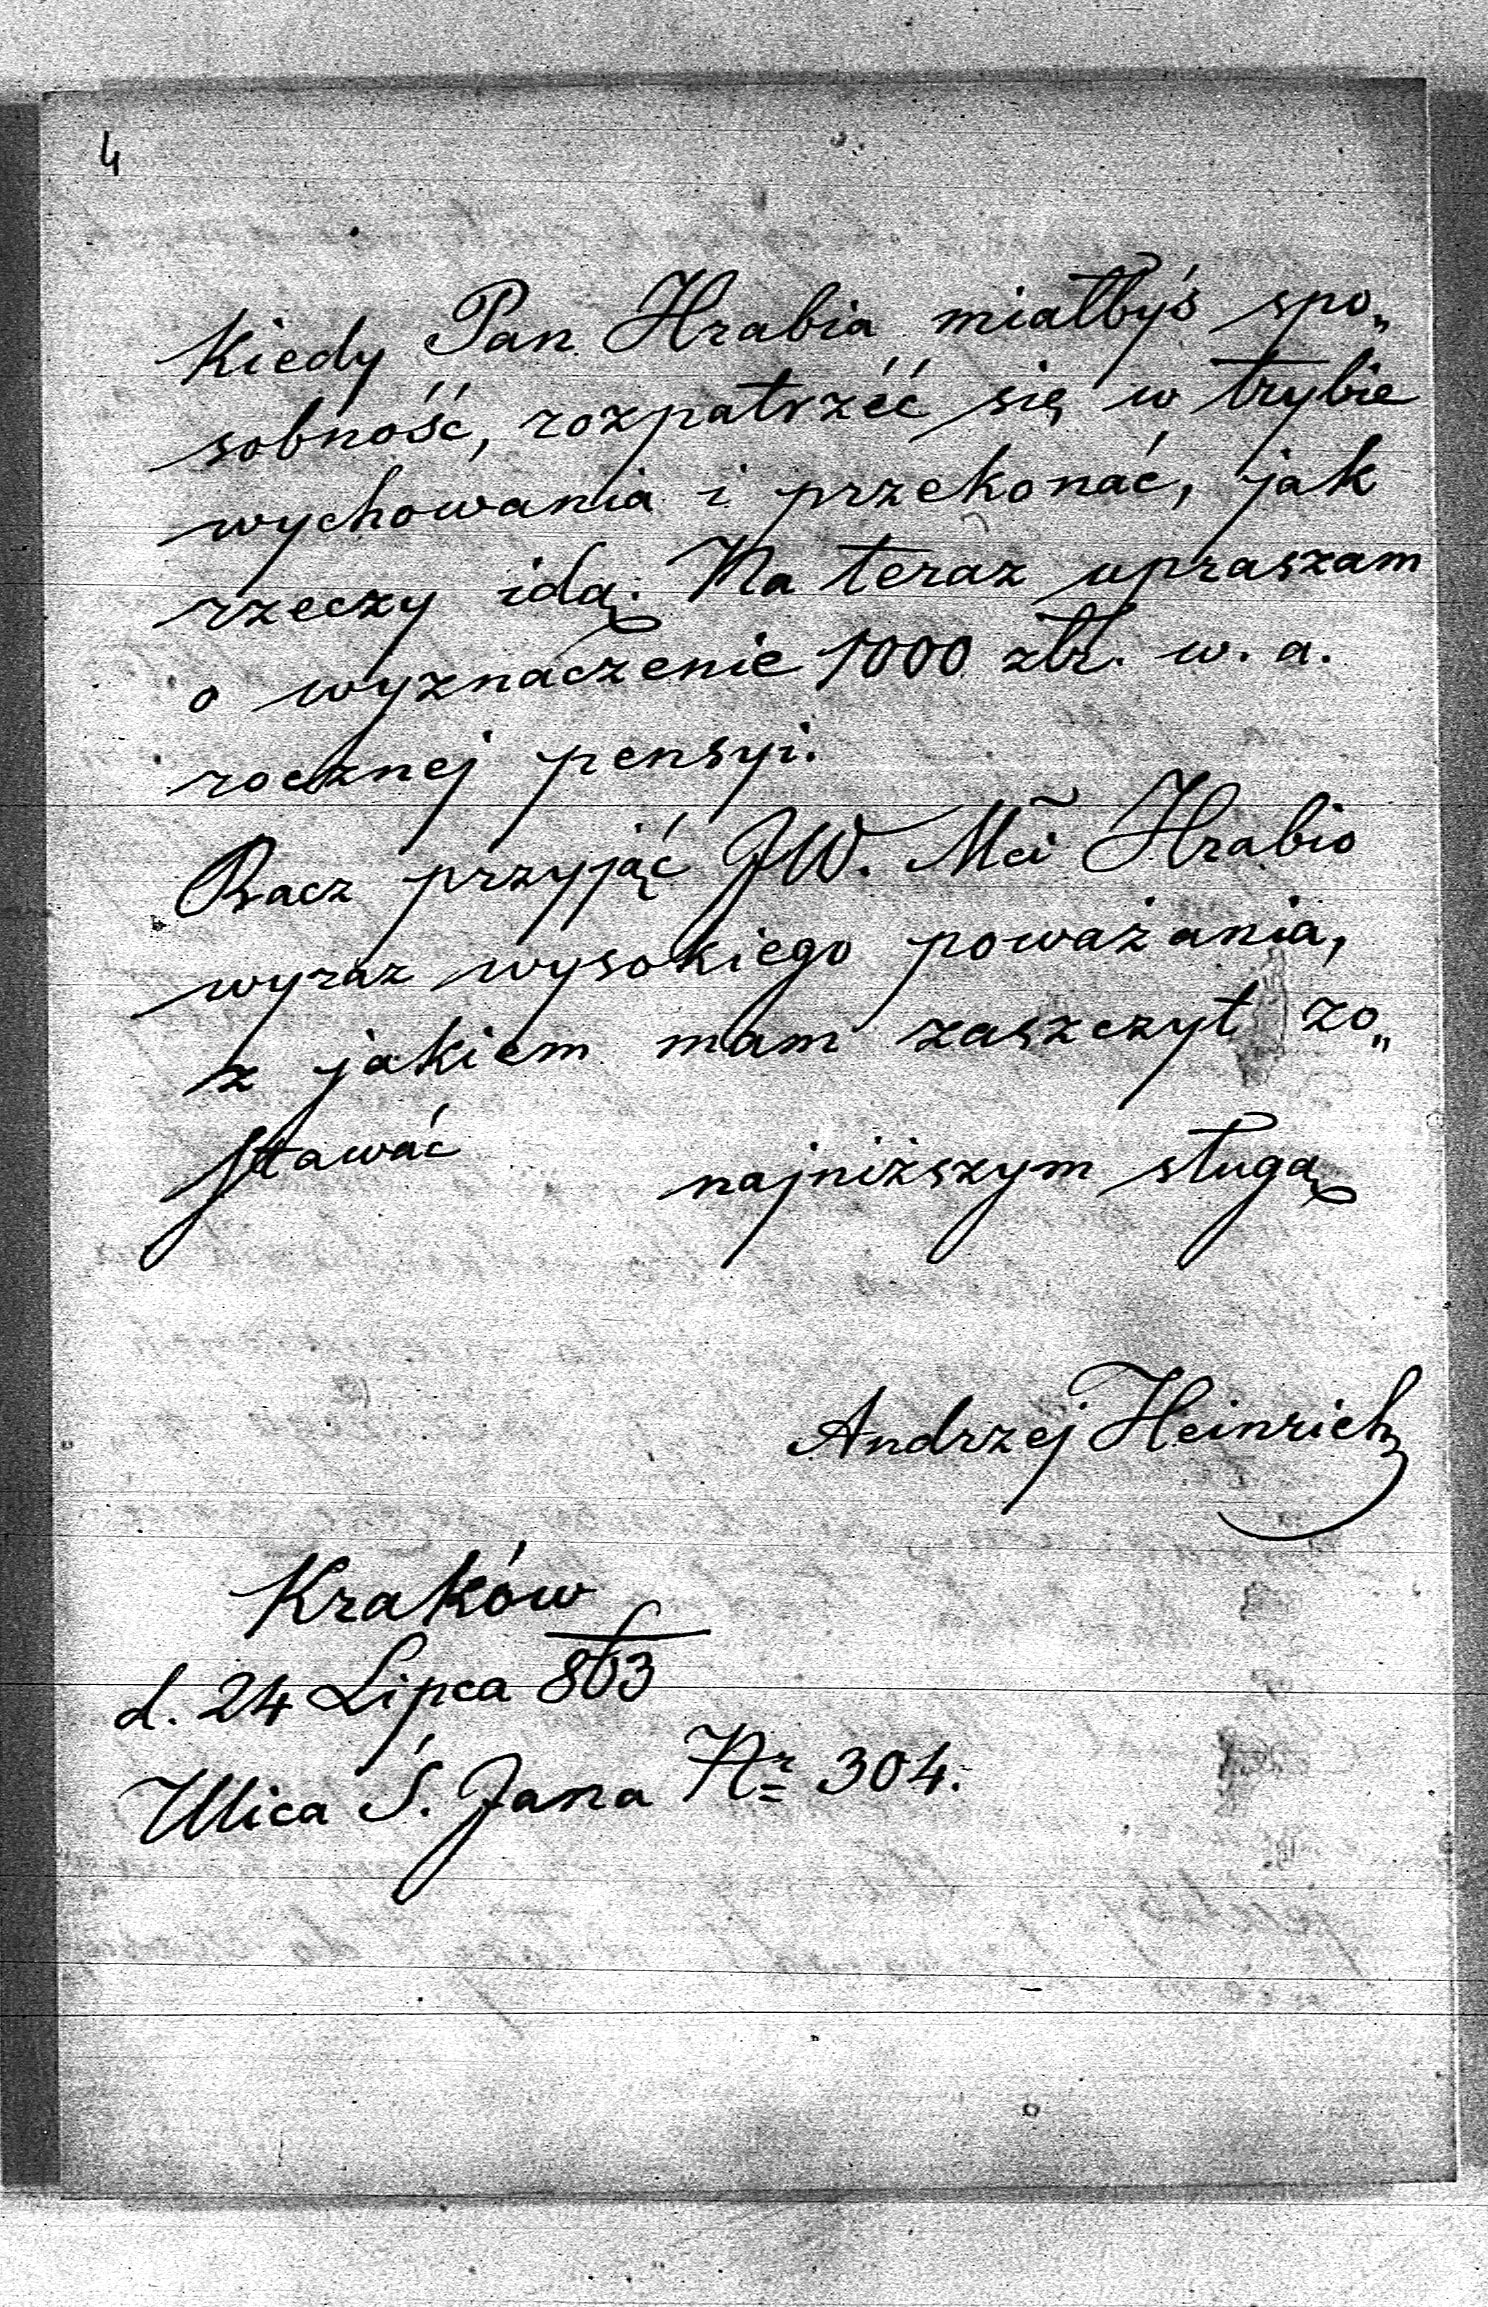 4
kiedy Pan Hrabia miałbyś spo„
sobność, rozpatrzéć się w trybie
wychowania i przekonać, jak
rzeczy idą. Na teraz upraszam
o wyznaczenie 1000 złr. w. a.
rocznej pensyi.
Racz przyjąć JW. Mci Hrabio
wyraz wysokiego poważania,
z jakiem mam zaszczyt zo„
stawać najniższym sługą
Andrzej Heinrich
Kraków
d. 24 Lipca 863
Ulica Ś. Jana Nr 304.